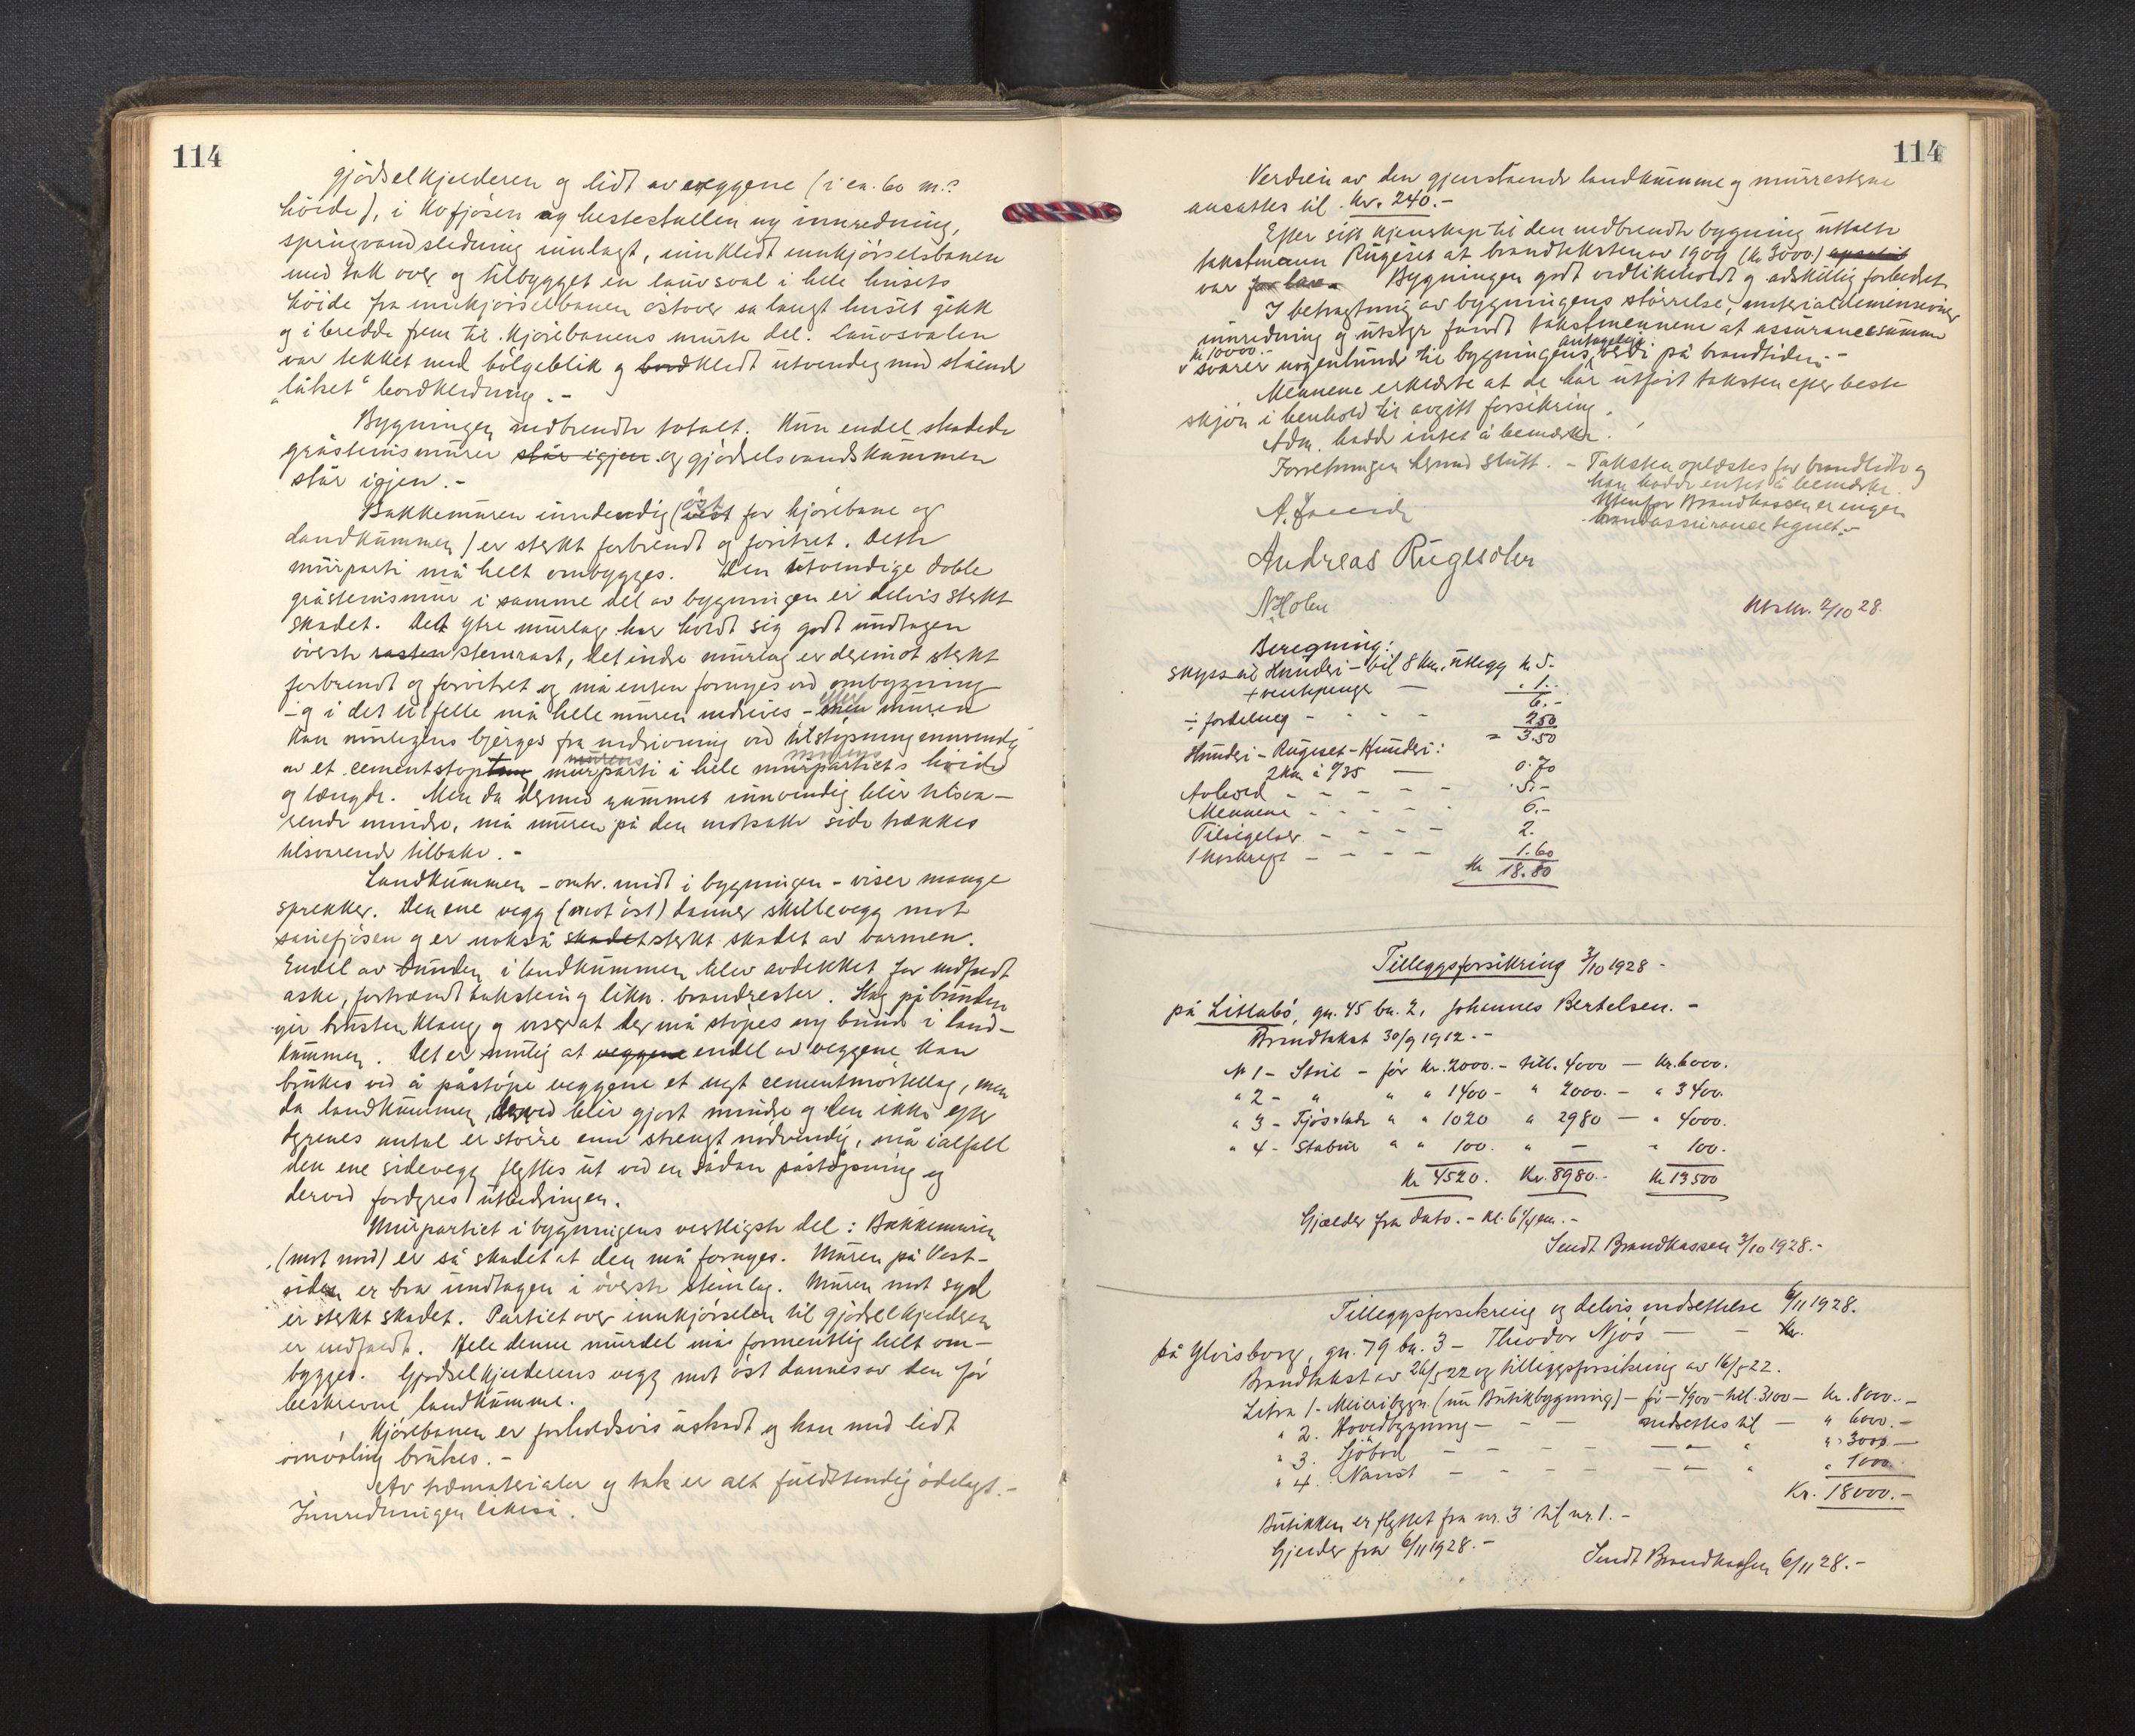 114
gjödselkjelderen og lidt av veggene (i ca. 60 m.²
höide), i kofjösen og hestestallen ny innredning,
springvandsledning innlagt, innkledt innkjörselsbanen
med tak over og tilbygget en lauvsval i hele husets
höide fra innkjörselbanen östover sa langt huset gikk
og i bredde frem til kjörebanens murte del. Lauvsvalen
var tekket med bölgeblik og bordkledt utvendig med stående
"låket" bordkledning. -
Bygningen nedbrendte totalt. Kun endel skadede
gråstensmurer står igjen og gjödselsvandskummen
står igjen. -
Bakkemuren innvendig (öst for kjörebane og
landkummen) er sterkt forbrendt og forvitret. Dette
murparti må helt ombygges. Den utvendige doble
gråstensmur i samme del av bygningen er delvis sterkt
skadet. Det ytre murlag har holdt sig godt undtagen
överste rasten stenrast, det indre murlag er derimot sterkt
forbrendt og forvitret og må enten fornyes ved ombygning
- og i det tilfelle må hele muren nedrives - eller muren
kan muligens bjerges fra nedrivning ved tilstöpning innvendig
av et cementstöpt murparti i hele murpartiets höide
og længde. Men da dermed rummet innvendig blir tilsva-
rende mindre, må muren på den motsatte side trækkes
tilsvarende tilbake. -
Landkummen - omtr. midt i bygningen - viser mange
sprekker. Den ene vegg (mot öst) danner skillevegg mot
sauefjösen og er också skadet sterkt skadet av varmen.
Endel av bunden i landkummen blev avdekket for nedfaldt
aske, forbrendt takstein og likn. brandrester. Slag på bunden
gir brusten klang og viser at der må stöpes ny bund i land-
kummen. Det er mulig at veggene endel av veggene kan
brukes ved å påstöpe veggene et nyt cementmörtellag, men
da landkummen derved blir gjort mindre og den ikke efter
dyrenes antal er större enn strengt nödvendig, må ialfall
den ene sidevegg flyttes ut ved en sådan påstöpning og
derved fordyres utbedringen.
Murpartiet i bygningens vestligste del: Bakkemuren
(mot nord) er så skadet at den må fornyes. Muren på Vest-
siden er bra undtagen i överste steinlag. Muren mot syd
er sterkt skadet. Partiet over innkjörselen til gjödselkjelderen
er nedfaldt. Hele denne murdel må formentlig helt om-
bygges. Gjödselkjelderens vegg mot öst dannes av den för
beskrevne landkumme.
Kjörebanen er forholdsvis uskadt og kan med lidt
omvöling brukes. -
Av træmaterialer og tak er alt fuldstendig ödelagt. -
Innredningen likeså.
114
Verdien av den gjenstaaende landkumme og murrestene
ansattes til Kr. 240. -
Efter sitt kjenskap til den nedbrendte bygning uttalte
takstmann Rugeset at brandtaksten av 1909 (kr 3000)
var for lav. Bygningen godt vedlikeholdt og adskillig forbedret.
I betragtning av bygningens störrelse, materialdimensioner
innredning og utstyr fandt takstmennene at assurancesummen
kr 10000.-
svarer nogenlunde til bygningens antagelige verdi på brandtiden. -
Mennene erklærte at de har utfört taksten efter beste
skjön i henhold til avgitt forsikring.
Adm. hadde intet å bemerke.
Forretningen dermed slutt. - Taksten oplæstes for brandlidte og
han hadde intet å bemerke.
Utenfor Brandkassen er ingen
brandassurance tegnet. -
Andreas Rugesæter
N Holen
Utskr. 2/10 28.
Beregning:
Skyss til Hundei - bil 8 km. utlegg kr 5.-
+ ventepenge — " 1.-
6.-
÷ fordeling - - - - 2.50
= 3.50
Hundei - Rugeset - Hundei:
2 km à 0/35 — 0.70
Avhold - - - - - 5.-
Mennene - - - - 6.-
Tilsigelser - - - - 2.
Utskrift - - - - 1.60
kr 18.80
Tilleggsforsikring 3/10 1928 -
på Litlabö, gn. 45 bn. 2, Johannes Bertelsen. -
Brandtakst 30/9 1912. -
N 1 - Stue - för kr. 2000.- till. 4000 — kr. 6000.
" 2 - " " " 1400 - " 2000. - " 3400.
" 3 - Fjös+lade " " 1020 " 2980 — " 4000.
" 4 - Stabur " " 100. " — " 100.
kr 4520. kr. 8980.- kr 13500
Gjælder fra dato. - kl. 6 1/4 em. -
Sendt Brandkassen 3/10 1928. -
Tilleggsforsikring og delvis nedsettelse 6/11 1928.
på Ylvisborg, gn. 79 bn. 3 - Theodor Njös — - kr.
Brandtakst av 26/5 22 og tilleggsforsikring av 16/5 22.
Litra 1 - Meieribygn. (nu Butikbygning) - för - 4900 - till. 3100 - kr. 8000. -
" 2. Hovedbygning - - - nedsettes til — " 6000. -
" 3. Sjöbod - - - - — " — " " 3000 -
" 4. Naust - - - - — " — " " 1000.
Kr. 18000. -
Butikken er flyttet fra nr. 3 til nr. 1. -
Gjelder fra 6/11 1928. -
Sendt Brandkassen 6/11 28. -